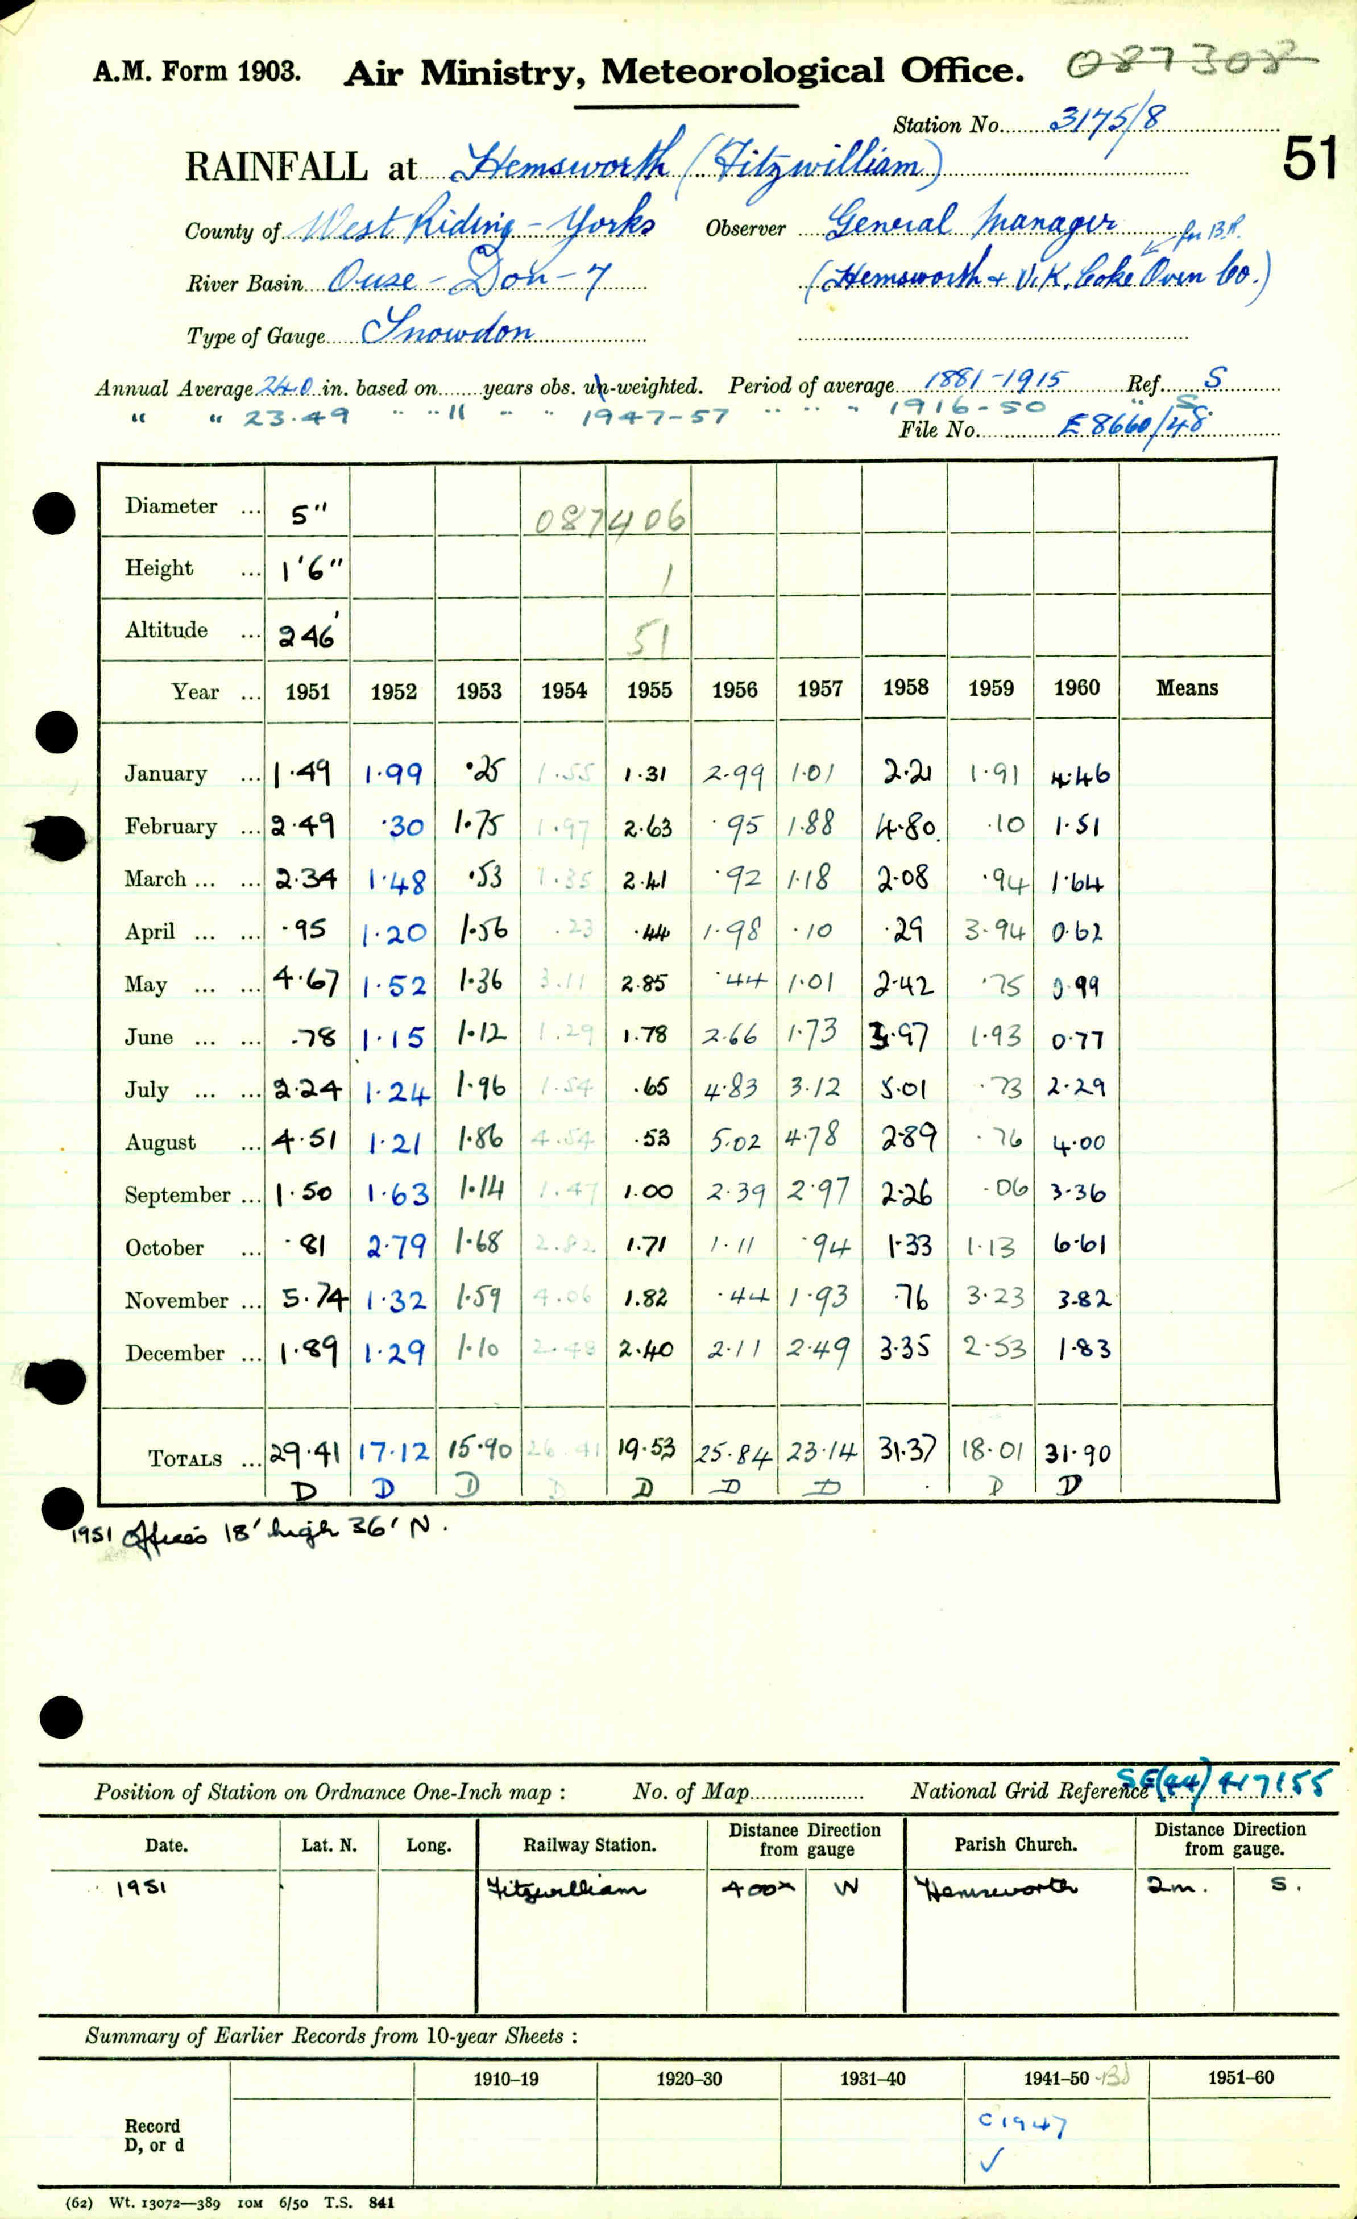 A.M. Form 1903. Air Ministry, Meteorological Office. 087308
Station No. 3175/8
RAINFALL at Hemsworth (Fitzwilliam) 51
County of West Riding - Yorks Observer General Manager for B.R.
River Basin Ouse - Don - 7 (Hemsworth & U.K. Coke Oven Co.)
Type of Gauge Snowdon
Annual Average 24.0 in. based on ........ years obs. un-weighted. Period of average 1881-1915 Ref. S
" " 23.49 " " 11 " " 1947-57 " " " 1916-50 " S.
File No. E8660/48
Diameter ... 5" 087406
Height ... 1'6" 1
Altitude ... 246' 51
Year ... 1951 1952 1953 1954 1955 1956 1957 1958 1959 1960 Means
January ... 1.49 1.99 .25 1.55 1.31 2.99 1.01 2.21 1.91 4.46
February ... 2.49 .30 1.75 1.97 2.63 .95 1.88 4.80 .10 1.51
March ... ... 2.34 1.48 .53 1.35 2.41 .92 1.18 2.08 .94 1.64
April ... ... .95 1.20 1.56 .23 .44 1.98 .10 .29 3.94 0.62
May ... ... 4.67 1.52 1.36 3.11 2.85 .44 1.01 2.42 .75 0.99
June ... ... .78 1.15 1.12 1.29 1.78 2.66 1.73 3.97 1.93 0.77
July ... ... 2.24 1.24 1.96 1.54 .65 4.83 3.12 5.01 .73 2.29
August ... 4.51 1.21 1.86 4.54 .53 5.02 4.78 2.89 .76 4.00
September ... 1.50 1.63 1.14 1.47 1.00 2.39 2.97 2.26 .06 3.36
October ... .81 2.79 1.68 2.82 1.71 1.11 .94 1.33 1.13 6.61
November ... 5.74 1.32 1.59 4.06 1.82 .44 1.93 .76 3.23 3.82
December ... 1.89 1.29 1.10 2.48 2.40 2.11 2.49 3.35 2.53 1.83
TOTALS ... 29.41 17.12 15.90 26.41 19.53 25.84 23.14 31.37 18.01 31.90
D D D D D D D D D
1951 Offices 18' high 36' N.
Position of Station on Ordnance One-Inch map : No. of Map........ National Grid Reference SE(44) 417155
Date. Lat. N. Long. Railway Station. Distance Direction from gauge Parish Church. Distance Direction from gauge.
1951 Fitzwilliam 400x W Hemsworth 2m. S.
Summary of Earlier Records from 10-year Sheets :
1910–19 1920–30 1931–40 1941–50 1951–60
Record D, or d C1947 ✓
(62) Wt. 13072—389 10M 6/50 T.S. 841